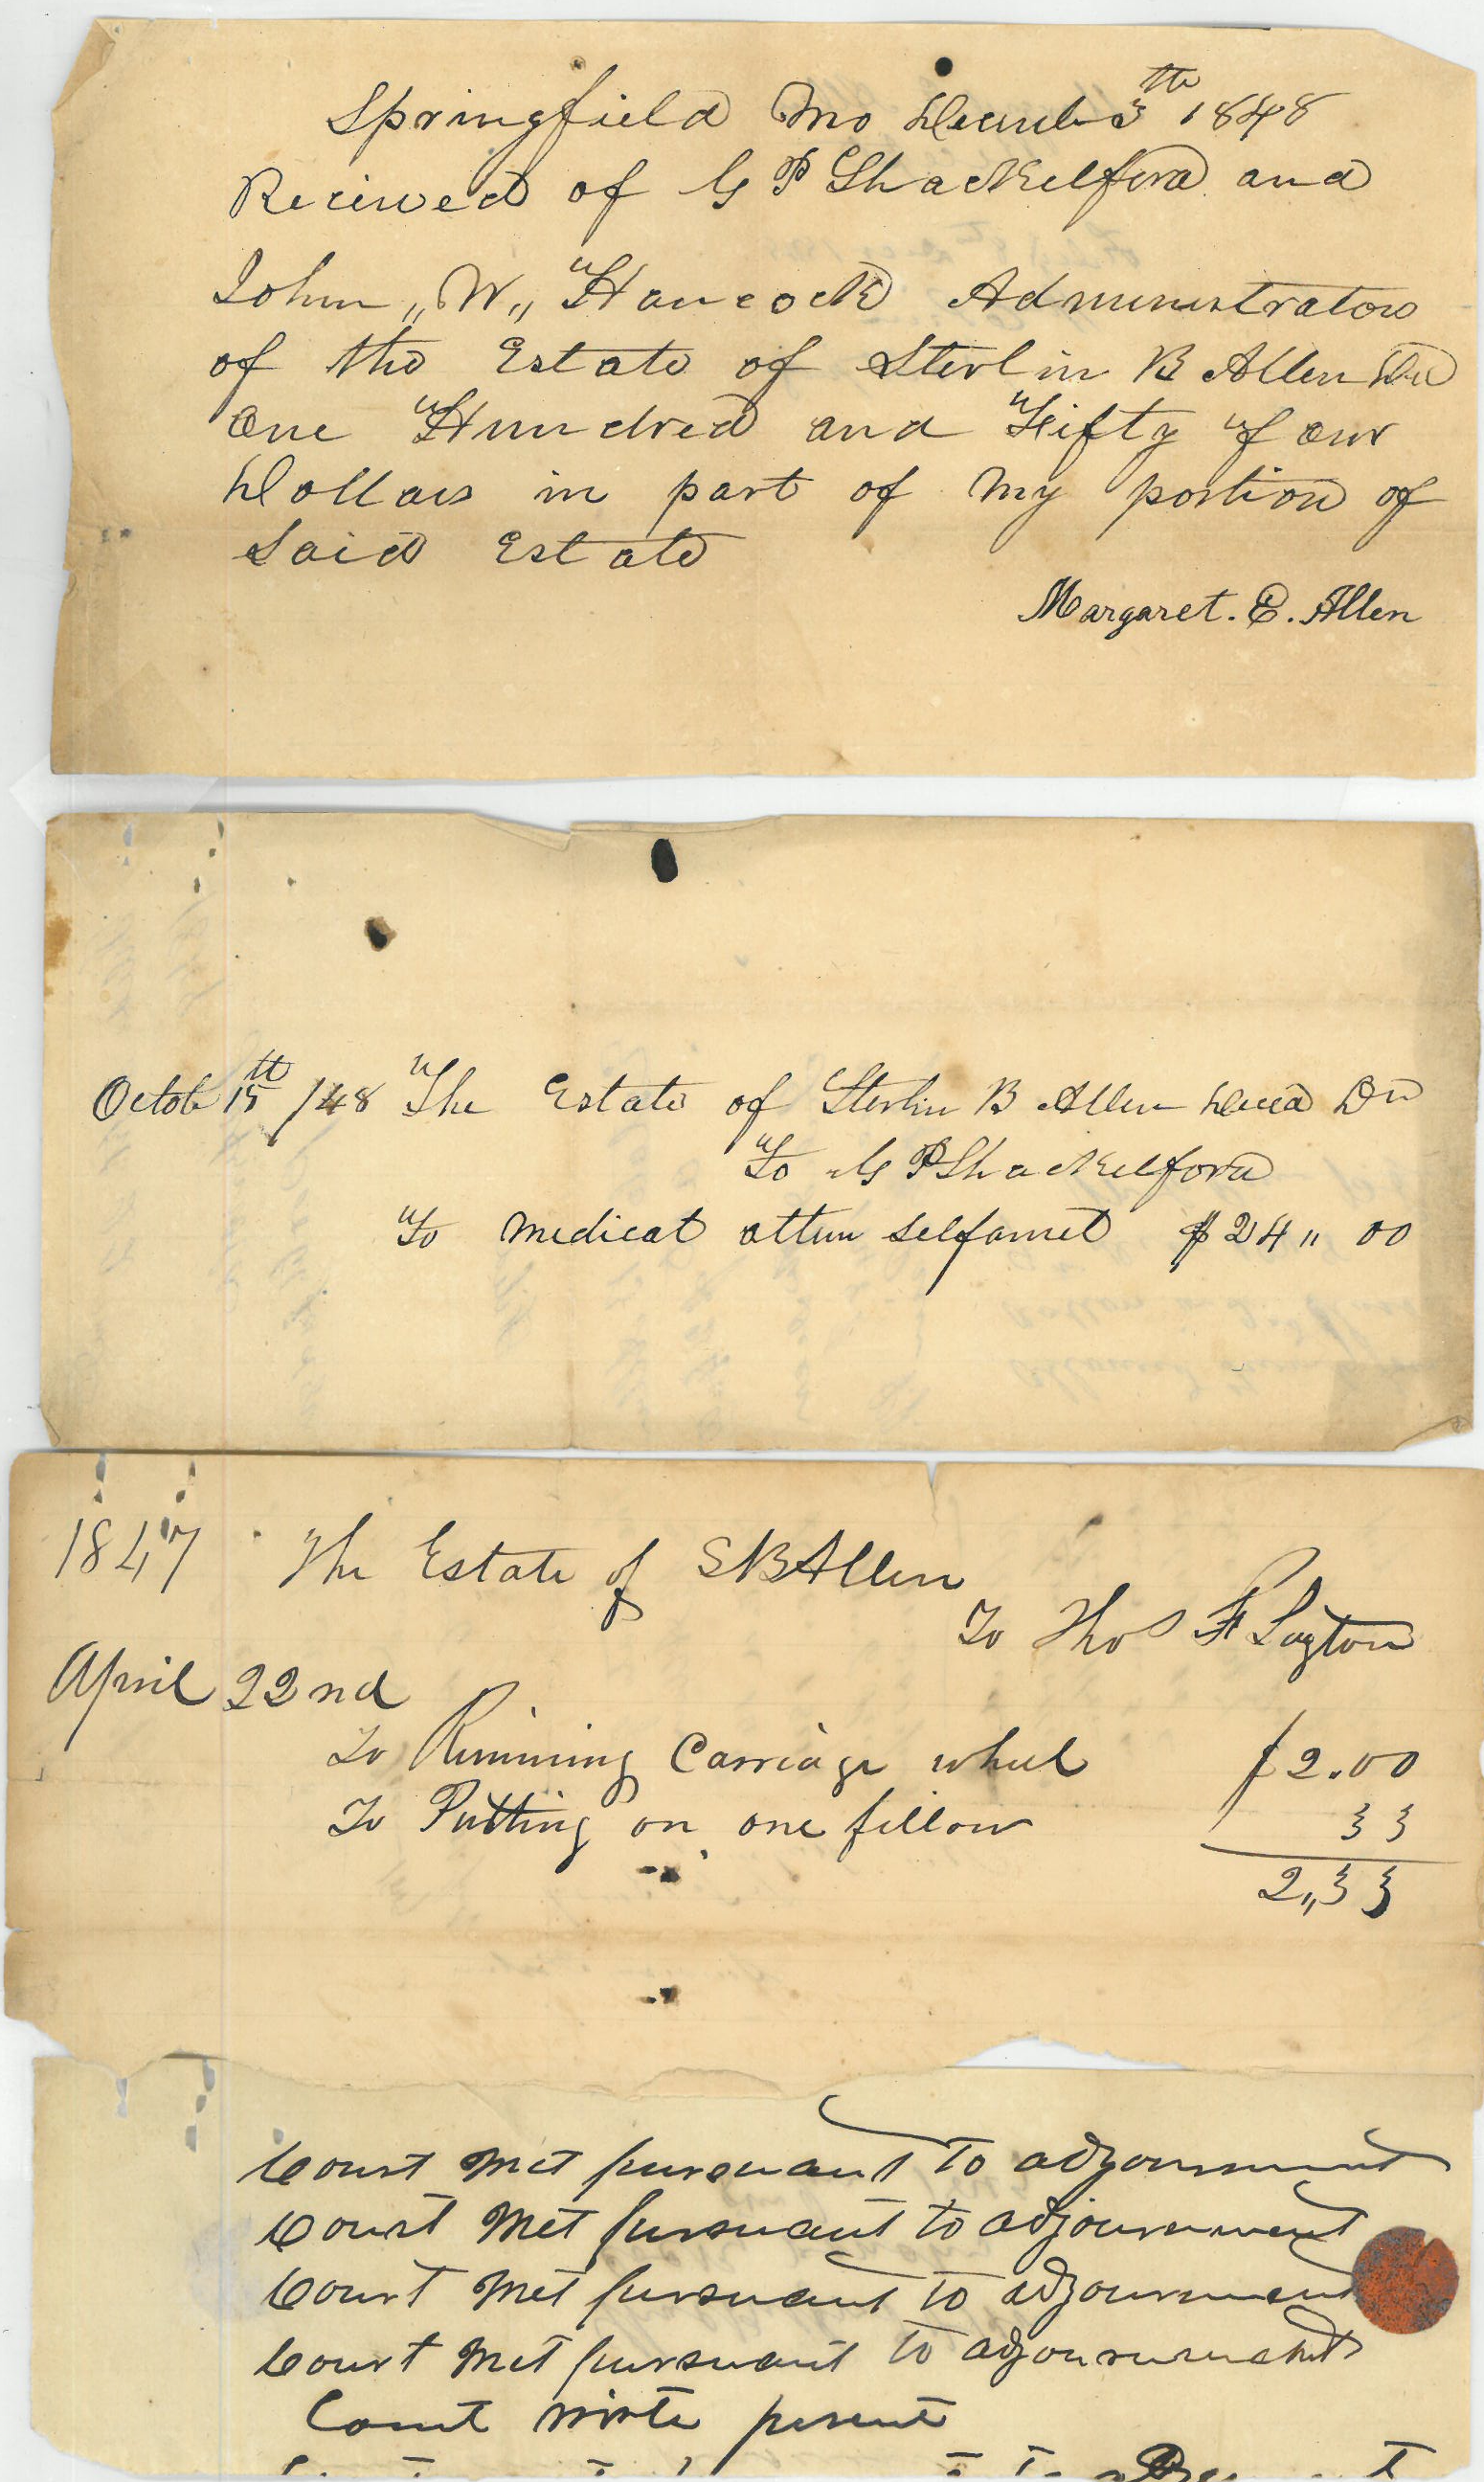 Springfield Mo Decemb 5th 1848
Recieved of G P Shackelford and
John „W„ Hancock Administrators
of the Estate of Sterlin B Allen Dec
One Hundred and Fifty four
Dollars in part of my portion of
Said Estate
Margaret. E. Allen
Octob 15th /48 The Estate of Sterlin B Allen Decd Dr
To G P Shackelford
To Medical atten $24 „ 00
1847 The Estate of S B Allen
To Thos F Layton
April 22nd
To Rimming Carriage wheel $2.00
To Putting on one fellow 33
2„33
Court Met pursuant to adjournment
Court Met pursuant to adjournment
Court Met pursuant to adjournment
Court Met pursuant to adjournment
Court